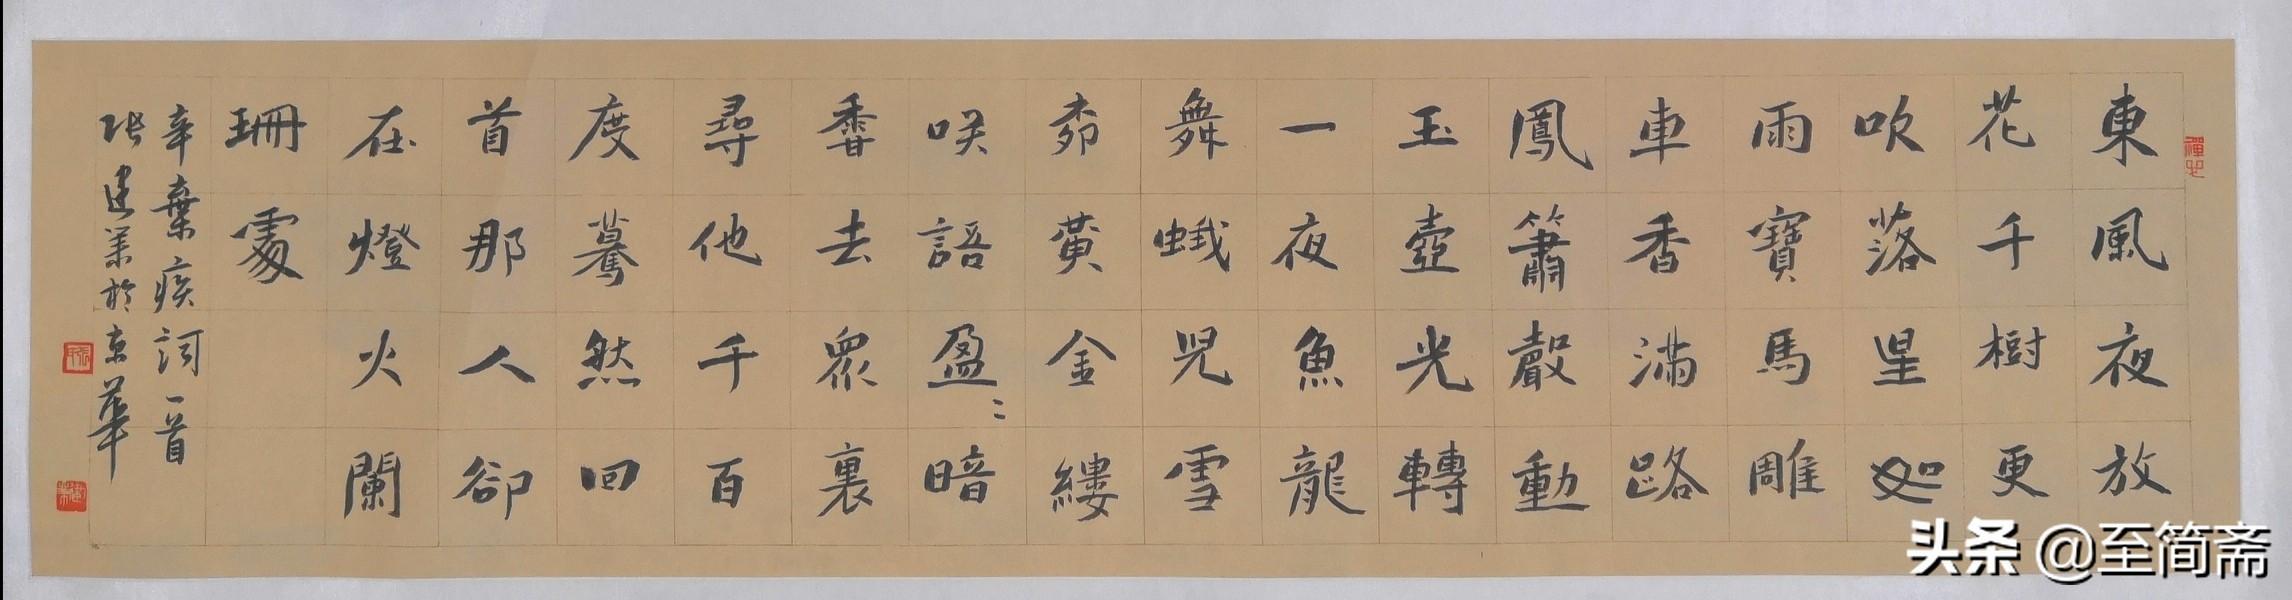 東風夜放
花千樹更
吹落星如
雨寶馬雕
車香滿路
鳳簫聲動
玉壺光轉
一夜魚龍
舞蛾兒雪
柳黃金縷
咲語盈〻暗
香去眾裏
尋他千百
度驀然回
首那人卻
在燈火闌
珊處
辛棄疾詞一首
張建業於京華
头条 @至简斋